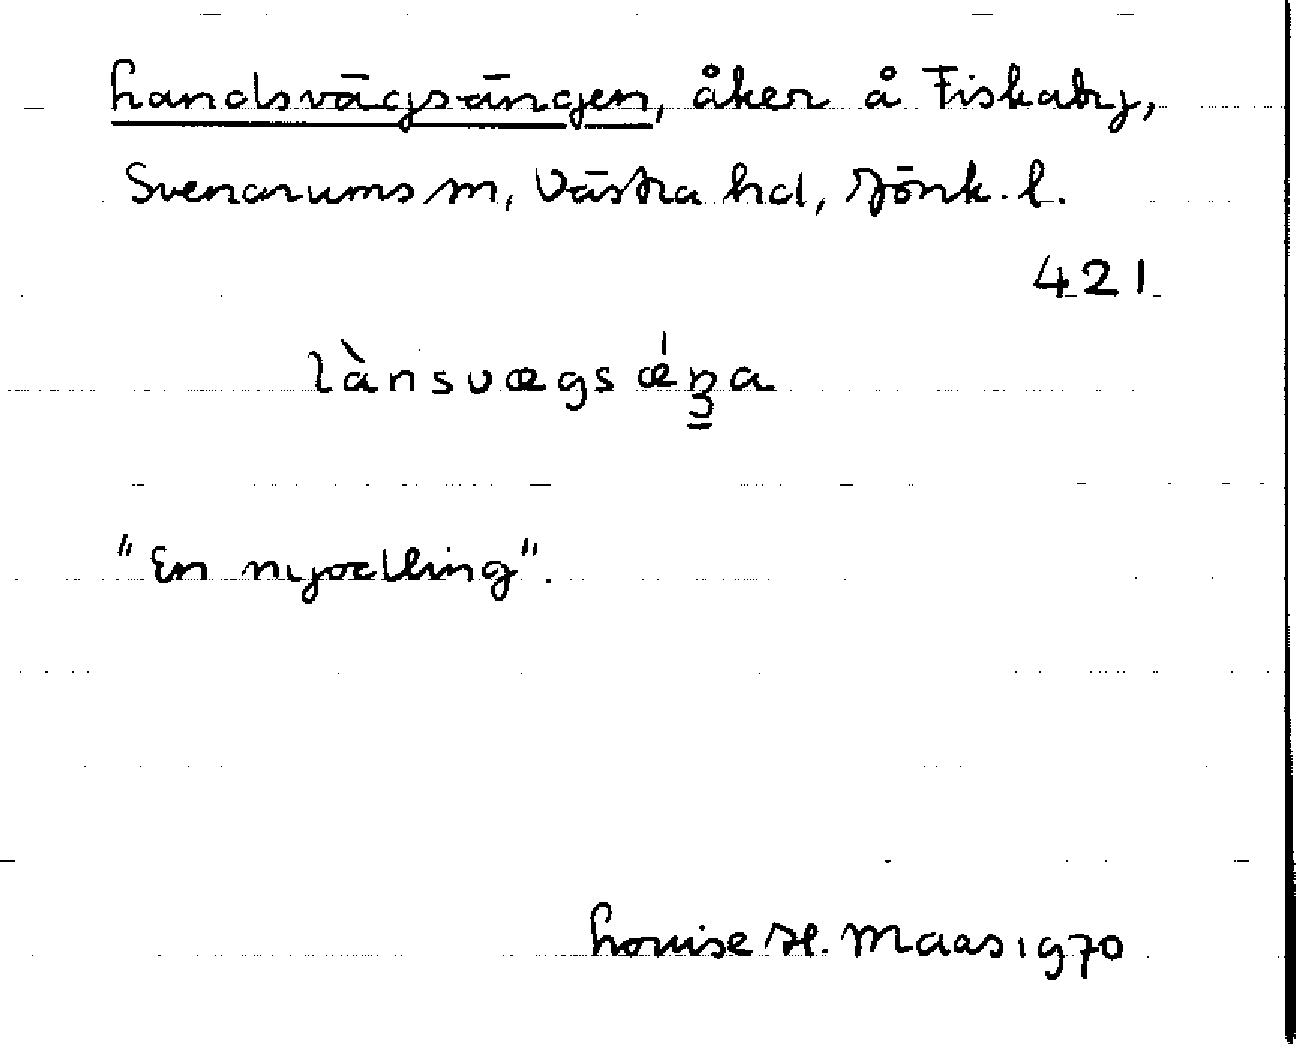 Landsvägsängen, åker å Fiskaby,
Svenarums sn, Västra hd, Jönk. l.
421
lànsvægsǽŋa
"En nyodling".
Louise H. Maas 1970